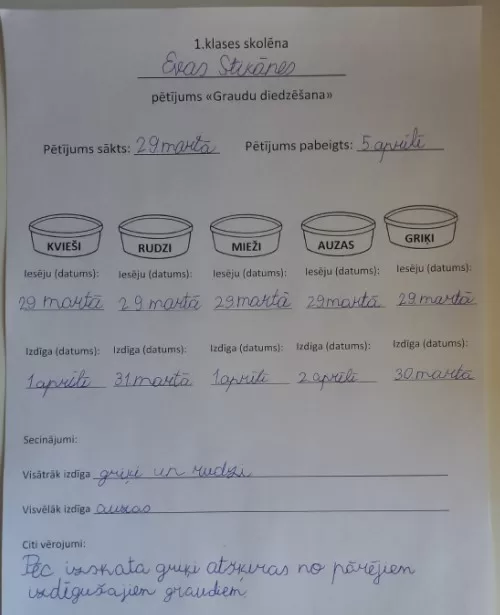 1.klases skolēna
Evas Stikānes
pētījums «Graudu diedzēšana»
Pētījums sākts: 29 martā Pētījums pabeigts: 5 aprīlī
KVIEŠI RUDZI MIEŽI AUZAS GRIĶI
Iesēju (datums): Iesēju (datums): Iesēju (datums): Iesēju (datums): Iesēju (datums):
29 martā 29 martā 29 martā 29 martā 29 martā
Izdīga (datums): Izdīga (datums): Izdīga (datums): Izdīga (datums): Izdīga (datums):
1 aprīlī 31 martā 1 aprīlī 2 aprīlī 30 martā
Secinājumi:
Visātrāk izdīga griķi un rudzi
Visvēlāk izdīga auzas
Citi vērojumi:
Pēc izskata griķi atšķiras no pārējiem
izdīgušajiem graudiem